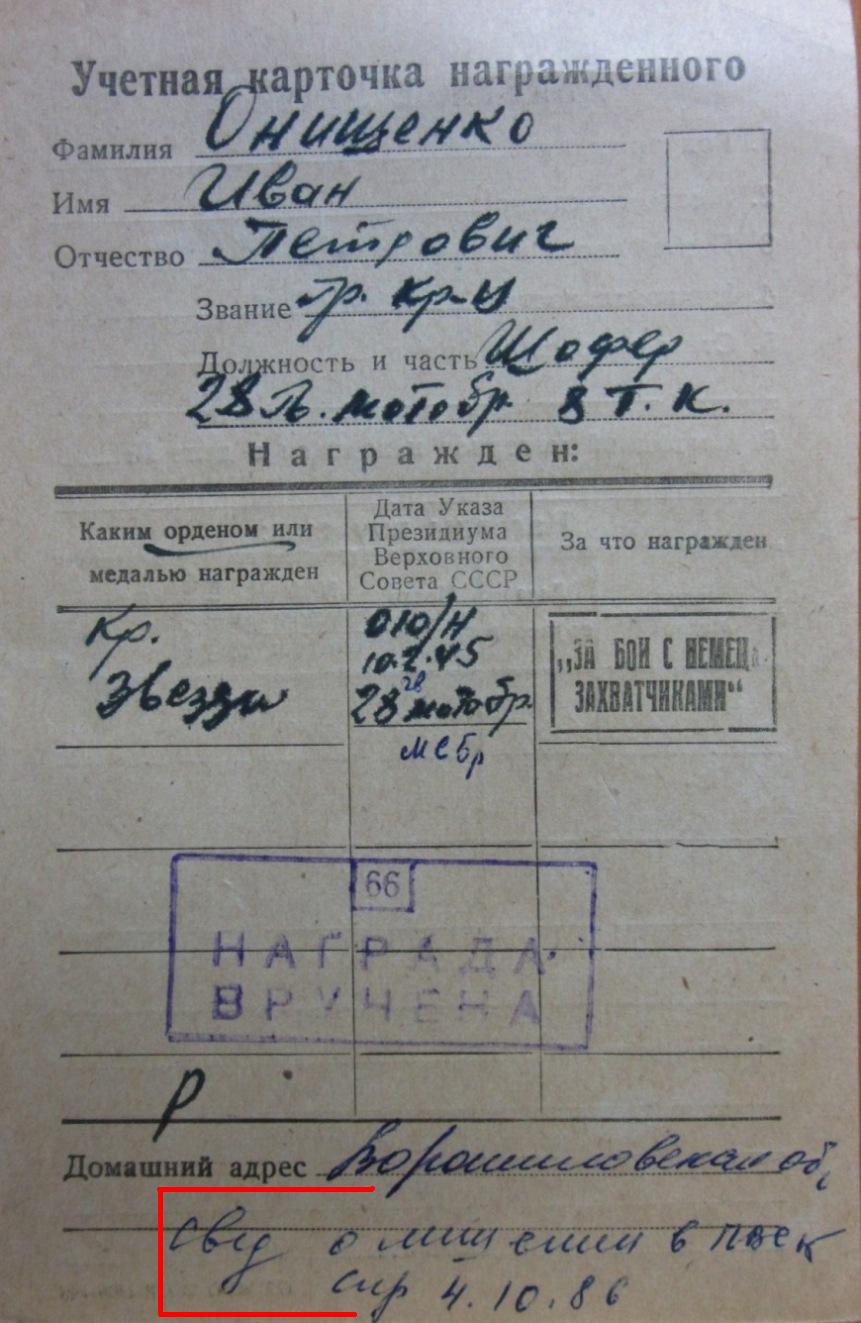 Учетная карточка награжденного
Фамилия Онищенко
Имя Иван
Отчество Петрович
Звание гр. кр-ц
Должность и часть Шофер
28 гв. мотобр. 8 т. к.
Награжден:
Каким орденом или медалью награжден
Дата Указа Президиума Верховного Совета СССР
За что награжден
Кр. Звезда
010/н
10.2.45
гв
28 мотобр.
мсбр
„ЗА БОИ С НЕМЕЦ.
ЗАХВАТЧИКАМИ“
66
НАГРАДА
ВРУЧЕНА
Р
Домашний адрес Ворошиловская об
свед о лишении в поек
спр 4.10.86